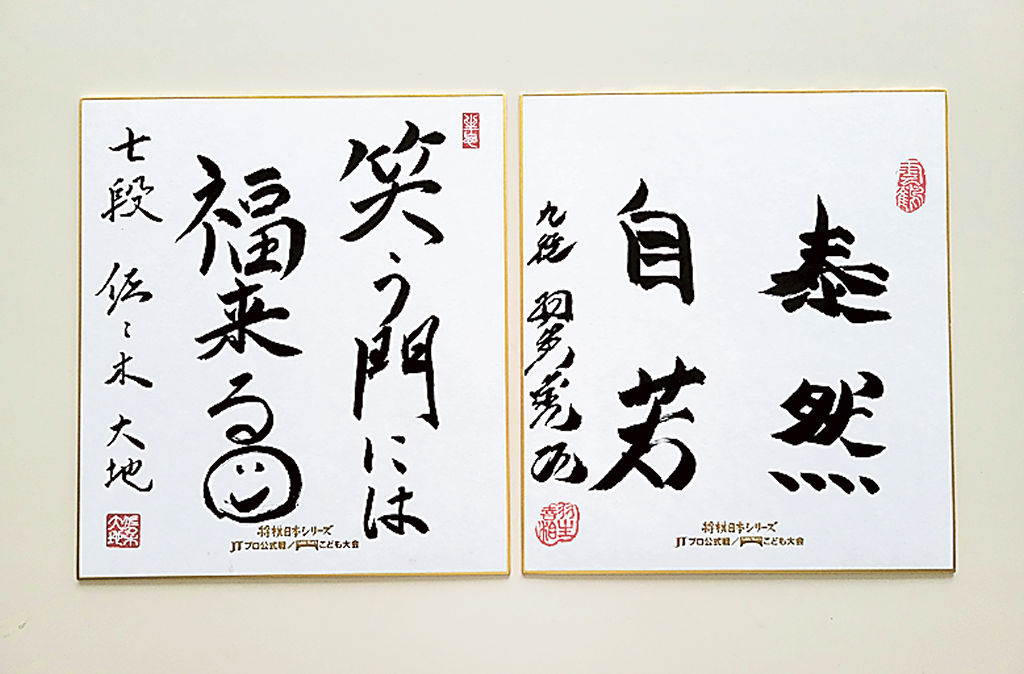 笑う門には
福来る
七段 佐々木大地
将棋日本シリーズ
JTプロ公式戦／こども大会
泰然
自若
九段 羽生善治
羽生善治
将棋日本シリーズ
JTプロ公式戦／こども大会